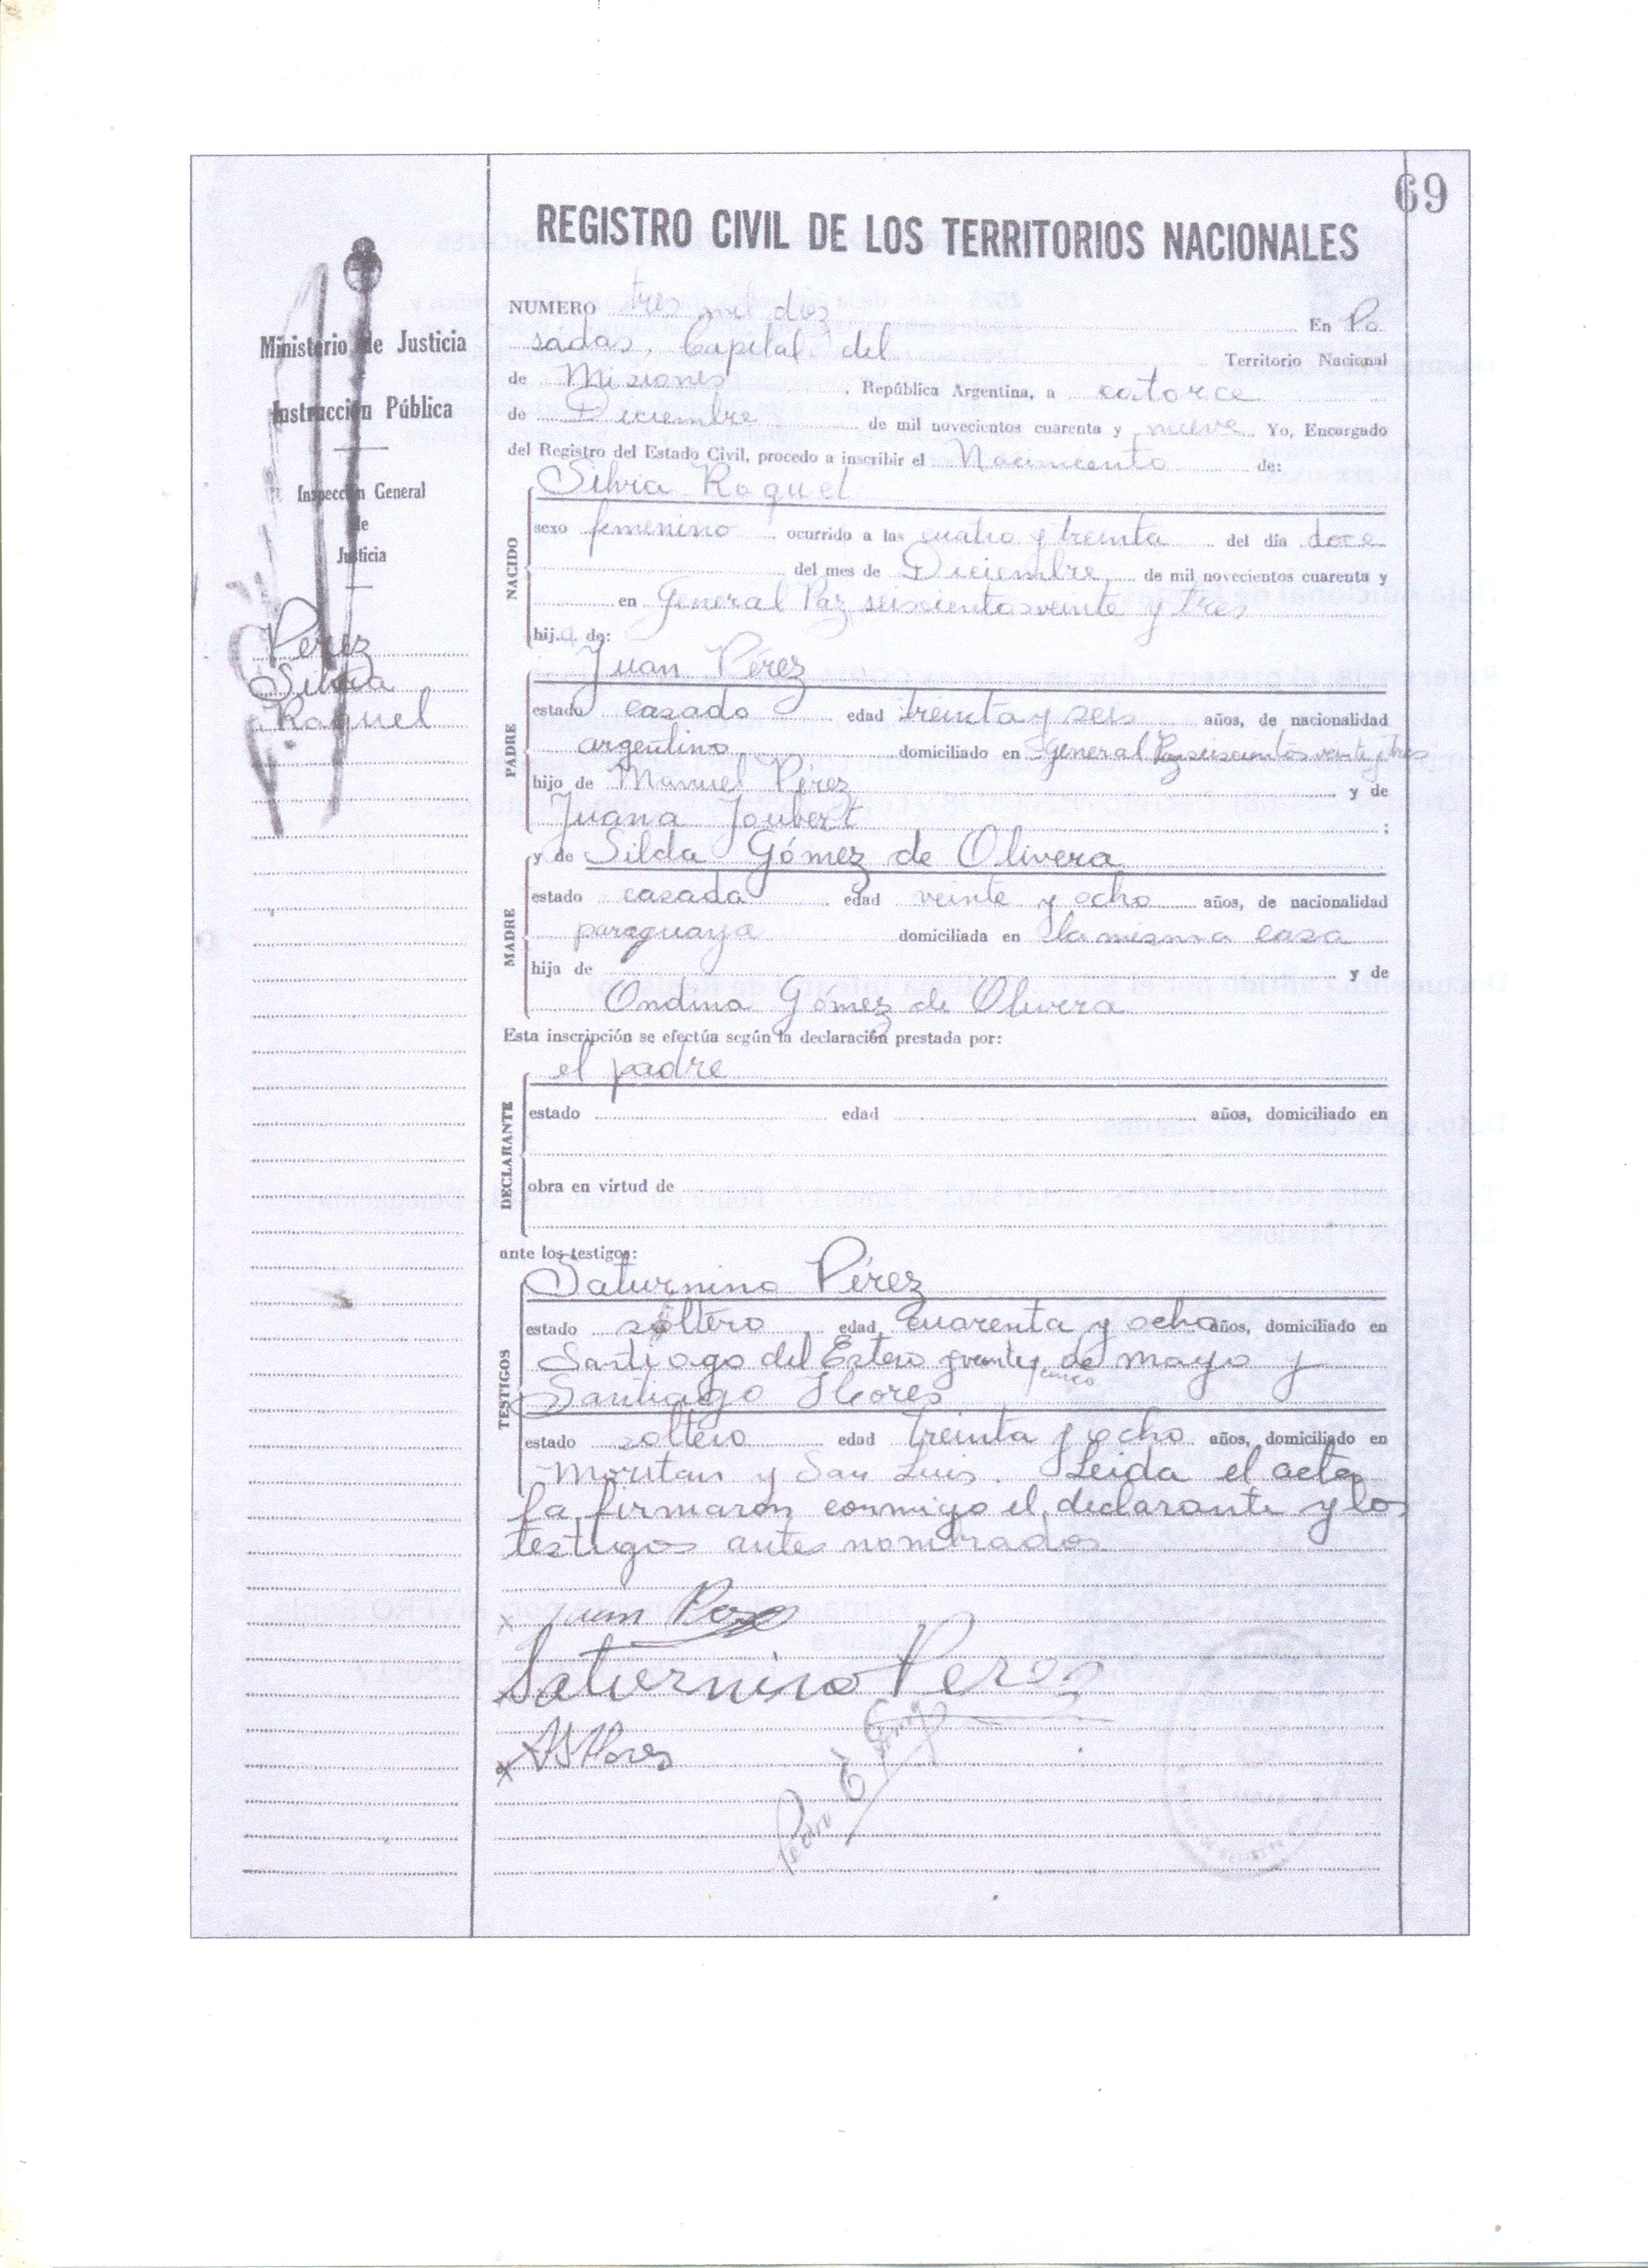 69
REGISTRO CIVIL DE LOS TERRITORIOS NACIONALES
Ministerio de Justicia
Instrucción Pública
Inspección General
de
Justicia
Pérez
Silvia
Raquel
NUMERO tres mil doz En Po
sadas, Capital del Territorio Nacional
de Misiones, República Argentina, a catorce
de Diciembre de mil novecientos cuarenta y nueve Yo, Encargado
del Registro del Estado Civil, procedo a inscribir el Nacimiento de:
NACIDO
Silvia Raquel
sexo femenino ocurrido a las cuatro y treinta del día doce
del mes de Diciembre, de mil novecientos cuarenta y
en General Paz seiscientos veinte y tres
hija de:
PADRE
Juan Pérez
estado casado edad treinta y seis años, de nacionalidad
argentino domiciliado en General Paz seiscientos veinte y tres
hijo de Manuel Pérez y de
Juana Joubert ;
MADRE
y de Silda Gómez de Olivera
estado casada edad veinte y ocho años, de nacionalidad
paraguaya domiciliada en la misma casa
hija de y de
Ondina Gómez de Olivera
Esta inscripción se efectúa según la declaración prestada por:
DECLARANTE
el padre
estado edad años, domiciliado en
obra en virtud de
ante los testigos:
TESTIGOS
Saturnino Pérez
estado soltero edad cuarenta y ocho años, domiciliado en
Santiago del Estero y veinte y cinco de mayo y
Santiago Flores
estado soltero edad treinta y ocho años, domiciliado en
y San Luis. Leida el acta
la firmaron conmigo el declarante y los
testigos antes nombrados
x Juan Perez
x Saturnino Perez
x Flores
Pedro